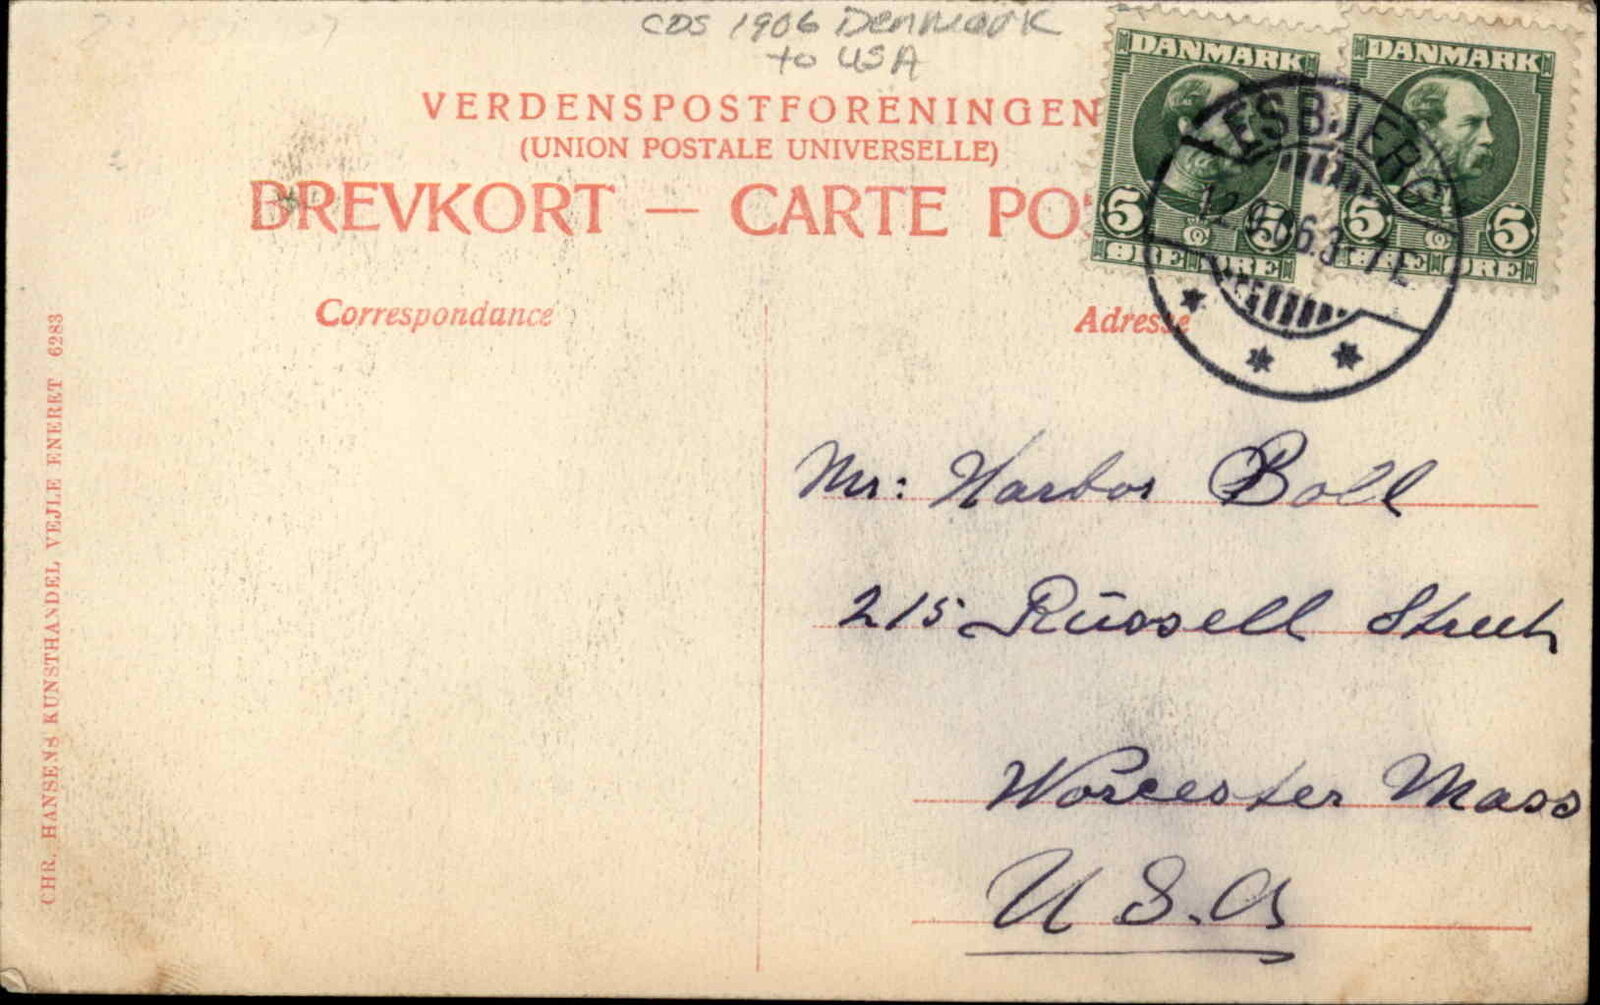 CDS 1906 Denmark
to USA
VERDENSPOSTFORENINGEN
(UNION POSTALE UNIVERSELLE)
BREVKORT — CARTE PO
DANMARK
5 5
ØRE ØRE
DANMARK
5 5
ØRE ØRE
ESBJERG
12.9.06.3-7E
Correspondance
Adresse
CHR. HANSENS KUNSTHANDEL VEJLE ENERET 6283
Mr: Harbor Boll
215 Russell Street
Worcester Mass
U S.A